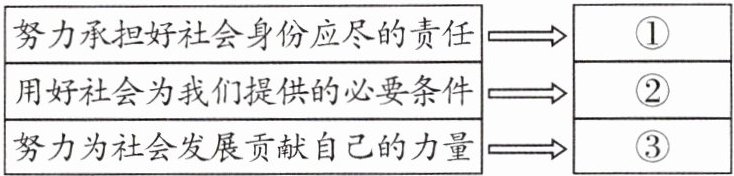 努力承担好社会身份应尽的责任 ①
用好社会为我们提供的必要条件 ②
努力为社会发展贡献自己的力量 ③